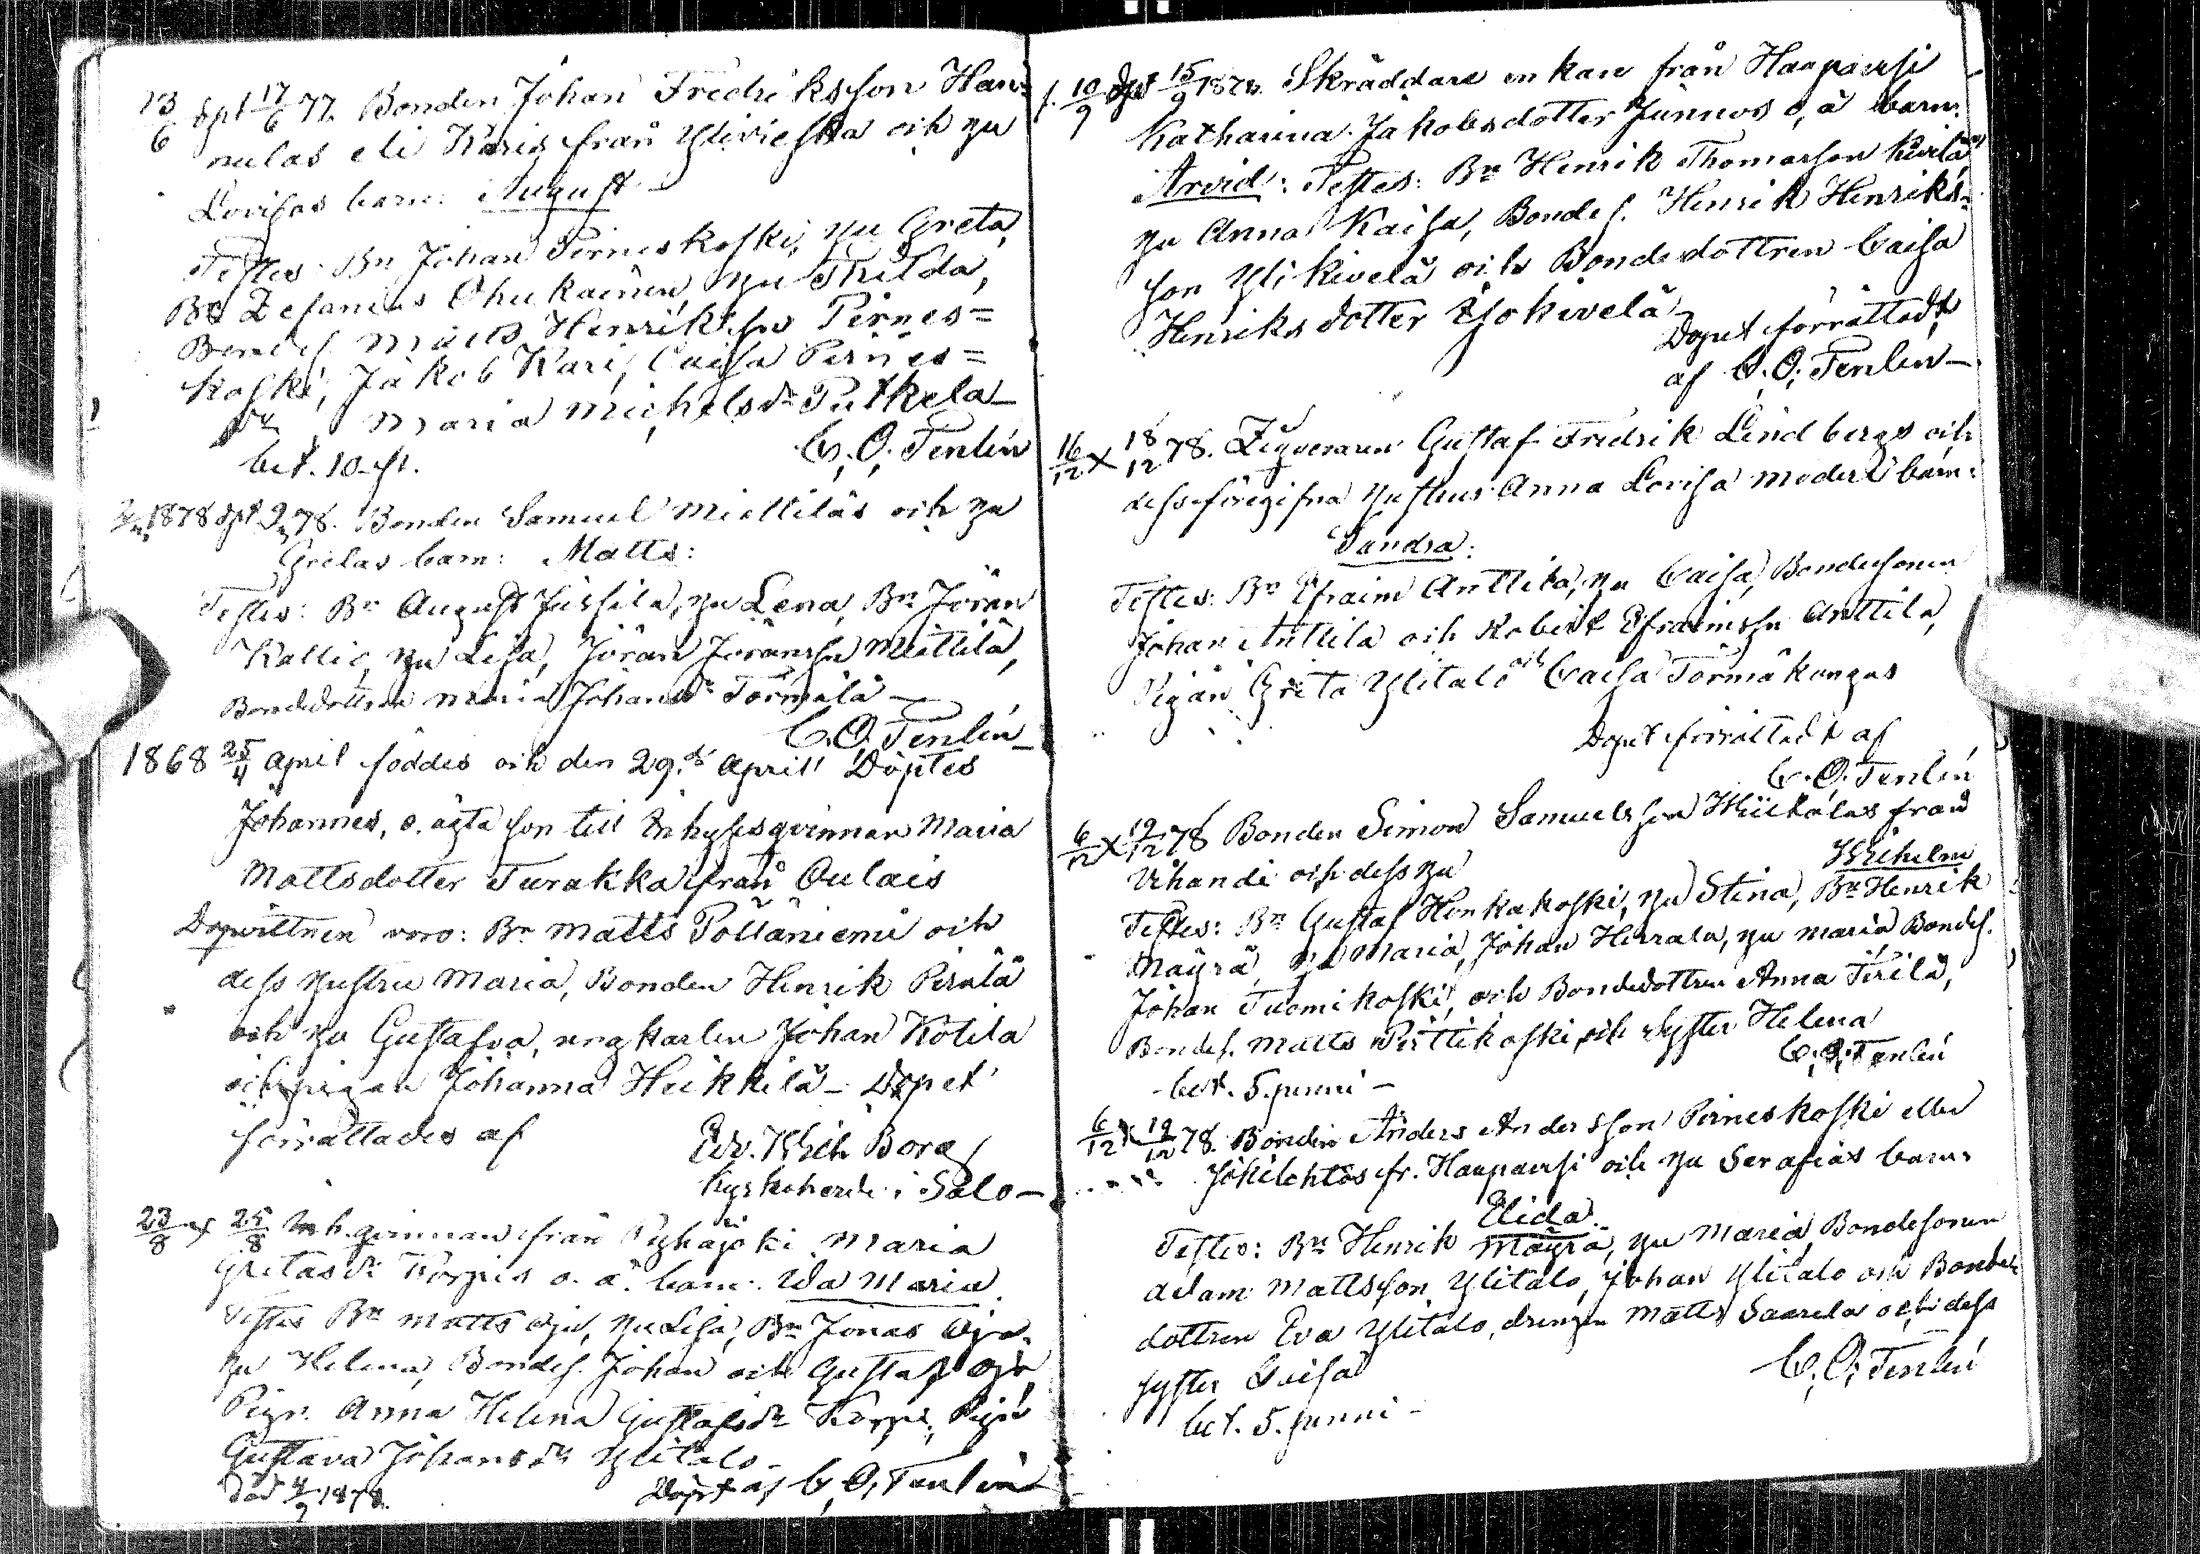 13/6 dpt 17/6 77. Bonden Johan Fredriksson Han-
nulas eli Karis från Ylivieska och hu
Lovisas barn: August
Testes: Bn Johan Pirneskoski, hu Greta,
Bn Zefanias Ohukainen, hu Thilda,
Bondes. Matts Henrikssn Pirnes=
koski, Jakob Kari, Caisa Pirnes=
Maria Michelsdr Putkela
bet. 10 p.
C. O. Tenlén
1878 dpt 78. Bonden Samuel Miettiläs och hu
Gretas barn: Matts:
Testes: Bn August Jussila, hu Lena, Bn Jöran
Kallio, hu Lisa, Jöran Jöranssn Miettilä,
Bondedottren Maria Johansdr Törmälä
C. O. Tenlén
1868 25/4 April föddes och den 29de April Döptes
Johannes, o. ägta son till Inhysesqvinnan Maria
Mattsdotter Turakka från Oulais
Dopvittnen voro: Bn Matts Pölläniemi och
dess hustru Maria, Bonden Henrik Pirilä
och hu Gustafva, ungkarlen Johan Kotila
och pigan Johanna Heikkilä - Dopet
förrättades af Edv. Wilh Borg
Kyrkoherde i Salo
23/8 x 25/8 Inh. qvinnan från Pyhäjoki Maria
Gretasdr Korpis o. ä. barn: Ida Maria.
Testes Bn Matts Oja, hu Lisa, Bn Jonas Oja,
hu Helena, Bondes. Johan och Gustaf Oja
Pign. Anna Helena Gustafsdr Korpi, Pign
Gustava Johansdr Ylitalo
Död 4/9 1878. Döpt af C. O. Tenlén
f. 10/9 dpt 15/9 1878. Skräddare enkan från Haapavesi
Katharina Jakobsdotter Junnos o, ä barn:
Arvid: Testes: Bn Henrik Thomasson Kivelä
hu Anna Kaisa, Bondes. Henrik Henriks=
son Ylikivelä och Bondedottren Caisa
Henriksdotter Yokivelä
Dopet förrättadt
af C. O. Tenlén
16/12 x 18/12 78. Legveraren Gustaf Fredrik Lindbergs och
dess föregifna hustrus Anna Lovisa Moders barn:
Sandra:
Testes: Bn Efraim Anttila, hu Caisa, Bondesonen
Johan Anttila och Robert Efraimssn Anttila,
Pigan Greta Ylitalo och Caisa Törmäkangas
Dopet förrättadt af
C. O. Tenlén
6/12 x 19/12 78 Bonden Simon Samuelsson från
Vihandi och dess hu Wilhelm
Testes: Bn Gustaf Honkakoski, hu Stina, Bn Henrik
Mäyrä, hu Maria, Johan Hirrala, hu Maria Bondes.
Johan Tuomikoski, och Bondedottren Anna Tirilä,
Bondes. Matts Pirttikoski, och syster Helena
C. O. Tenlén
bet. 5. penni -
6/12 x 19/12 78. Bonden Anders Andersson Pirneskoski eller
Jokilehtos fr. Haapavesi och hu Serafias barn:
Elida
Testes: Bn Henrik Mäyrä, hu Maria, Bondesonen
Adam Mattsson Ylitalo, Johan Ylitalo och Bonde
dottren Eva Ylitalo, drengen Matts Saarela och dess
syster Caisa
C. O. Tenlén
bet. 5. penni -